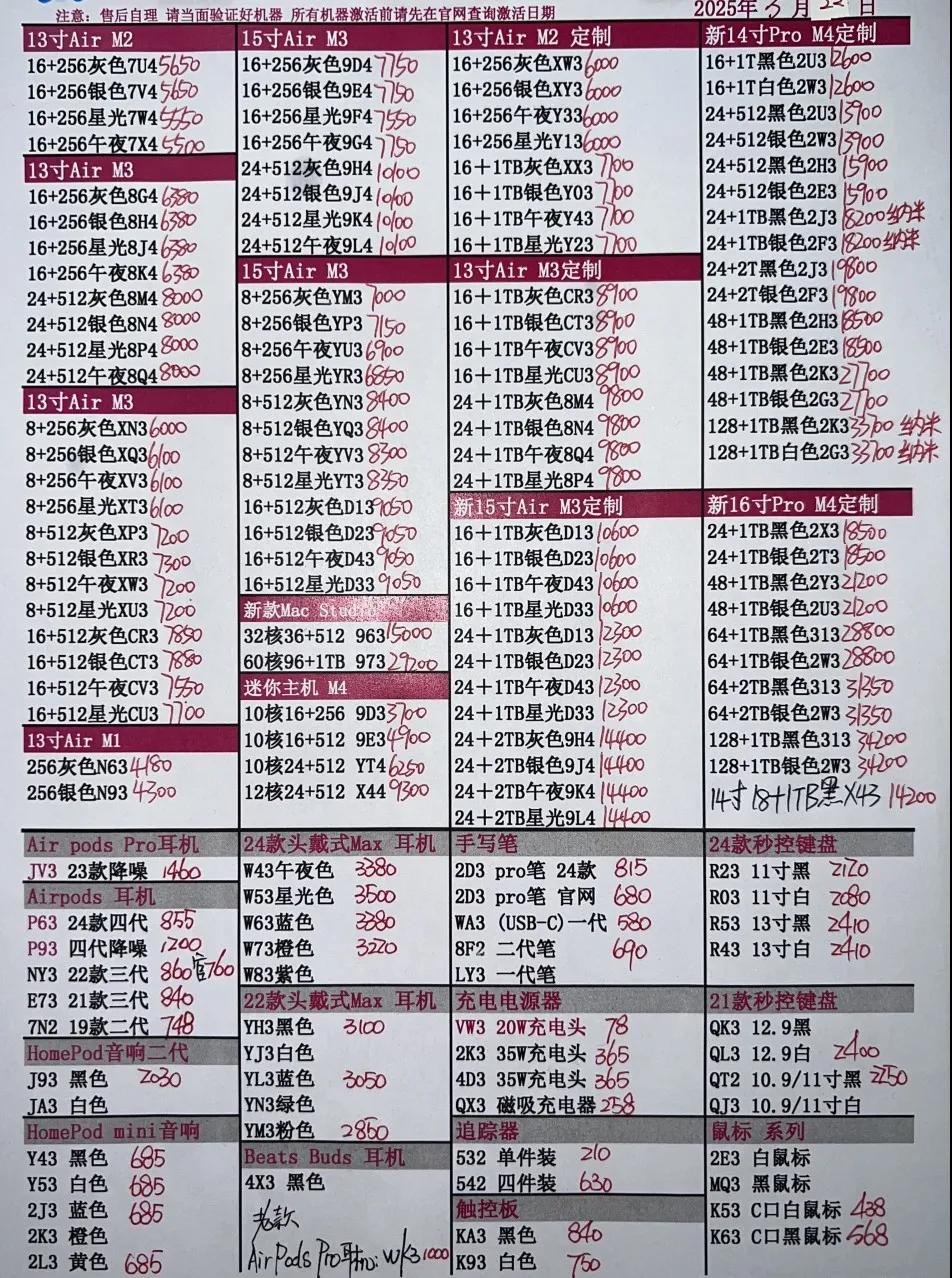 注意: 售后自理 请当面验证好机器 所有机器激活前请先在官网查询激活日期
2025年3月22日
13寸Air M2
16+256灰色7U4 5650
16+256银色7V4 5650
16+256星光7W4 5550
16+256午夜7X4 5500
13寸Air M3
16+256灰色8G4 6380
16+256银色8H4 6380
16+256星光8J4 6380
16+256午夜8K4 6380
24+512灰色8M4 8000
24+512银色8N4 8000
24+512星光8P4 8000
24+512午夜8Q4 8000
13寸Air M3
8+256灰色XN3 6000
8+256银色XQ3 6100
8+256午夜XV3 6100
8+256星光XT3 6100
8+512灰色XP3 7200
8+512银色XR3 7300
8+512午夜XW3 7200
8+512星光XU3 7200
16+512灰色CR3 7850
16+512银色CT3 7880
16+512午夜CV3 7550
16+512星光CU3 7700
13寸Air M1
256灰色N63 4180
256银色N93 4300
15寸Air M3
16+256灰色9D4 7750
16+256银色9E4 7750
16+256星光9F4 7550
16+256午夜9G4 7750
24+512灰色9H4 10100
24+512银色9J4 10100
24+512星光9K4 10100
24+512午夜9L4 10100
15寸Air M3
8+256灰色YM3 7000
8+256银色YP3 7150
8+256午夜YU3 6900
8+256星光YR3 6850
8+512灰色YN3 8400
8+512银色YQ3 8400
8+512午夜YV3 8300
8+512星光YT3 8350
16+512灰色D13 9050
16+512银色D23 9050
16+512午夜D43 9050
16+512星光D33 9050
新款Mac Studio
32核36+512 963 15000
60核96+1TB 973 29200
迷你主机 M4
10核16+256 9D3 3700
10核16+512 9E3 4900
10核24+512 YT4 6250
12核24+512 X44 9300
13寸Air M2 定制
16+256灰色XW3 6000
16+256银色XY3 6000
16+256午夜Y33 6000
16+256星光Y13 6000
16+1TB灰色XX3 7700
16+1TB银色Y03 7700
16+1TB午夜Y43 7700
16+1TB星光Y23 7700
13寸Air M3定制
16+1TB灰色CR3 8900
16+1TB银色CT3 8900
16+1TB午夜CV3 8900
16+1TB星光CU3 8900
24+1TB灰色8M4 9800
24+1TB银色8N4 9800
24+1TB午夜8Q4 9800
24+1TB星光8P4 9800
新15寸Air M3定制
16+1TB灰色D13 10600
16+1TB银色D23 10600
16+1TB午夜D43 10600
16+1TB星光D33 10600
24+1TB灰色D13 12300
24+1TB银色D23 12300
24+1TB午夜D43 12300
24+1TB星光D33 12300
24+2TB灰色9H4 14400
24+2TB银色9J4 14400
24+2TB午夜9K4 14400
24+2TB星光9L4 14400
新14寸Pro M4定制
16+1T黑色2U3 12600
16+1T白色2W3 12600
24+512黑色2U3 13900
24+512银色2W3 13900
24+512黑色2H3 15900
24+512银色2E3 15900
24+1TB黑色2J3 18200 纳米
24+1TB银色2F3 18200 纳米
24+2T黑色2J3 19800
24+2T银色2F3 19800
48+1TB黑色2H3 18500
48+1TB银色2E3 18500
48+1TB黑色2K3 27700
48+1TB银色2G3 27700
128+1TB黑色2K3 33700 纳米
128+1TB白色2G3 33700 纳米
新16寸Pro M4定制
24+1TB黑色2X3 18500
24+1TB银色2T3 18500
48+1TB黑色2Y3 21200
48+1TB银色2U3 21200
64+1TB黑色313 28800
64+1TB银色2W3 28800
64+2TB黑色313 31350
64+2TB银色2W3 31350
128+1TB黑色313 34200
128+1TB银色2W3 34200
14寸 18+1TB黑X43 14200
Air pods Pro耳机
JV3 23款降噪 1460
Airpods 耳机
P63 24款四代 855
P93 四代降噪 1200
NY3 22款三代 860 官760
E73 21款三代 840
7N2 19款二代 748
HomePod音响二代
J93 黑色 2030
JA3 白色
HomePod mini音响
Y43 黑色 685
Y53 白色 685
2J3 蓝色 685
2K3 橙色
2L3 黄色 685
24款头戴式Max 耳机
W43午夜色 3380
W53星光色 3500
W63蓝色 3380
W73橙色 3220
W83紫色
22款头戴式Max 耳机
YH3黑色 3100
YJ3白色
YL3蓝色 3050
YN3绿色
YM3粉色 2850
Beats Buds 耳机
4X3 黑色
老款
AirPods Pro耳机: WK3 1000
手写笔
2D3 pro笔 24款 815
2D3 pro笔 官网 680
WA3 (USB-C)一代 580
8F2 二代笔 690
LY3 一代笔
充电电源器
VW3 20W充电头 78
2K3 35W充电头 365
4D3 35W充电头 365
QX3 磁吸充电器 258
追踪器
532 单件装 210
542 四件装 630
触控板
KA3 黑色 840
K93 白色 750
24款秒控键盘
R23 11寸黑 2120
R03 11寸白 2080
R53 13寸黑 2410
R43 13寸白 2410
21款秒控键盘
QK3 12.9黑
QL3 12.9白 2400
QT2 10.9/11寸黑 2250
QJ3 10.9/11寸白
鼠标 系列
2E3 白鼠标
MQ3 黑鼠标
K53 C口白鼠标 438
K63 C口黑鼠标 568